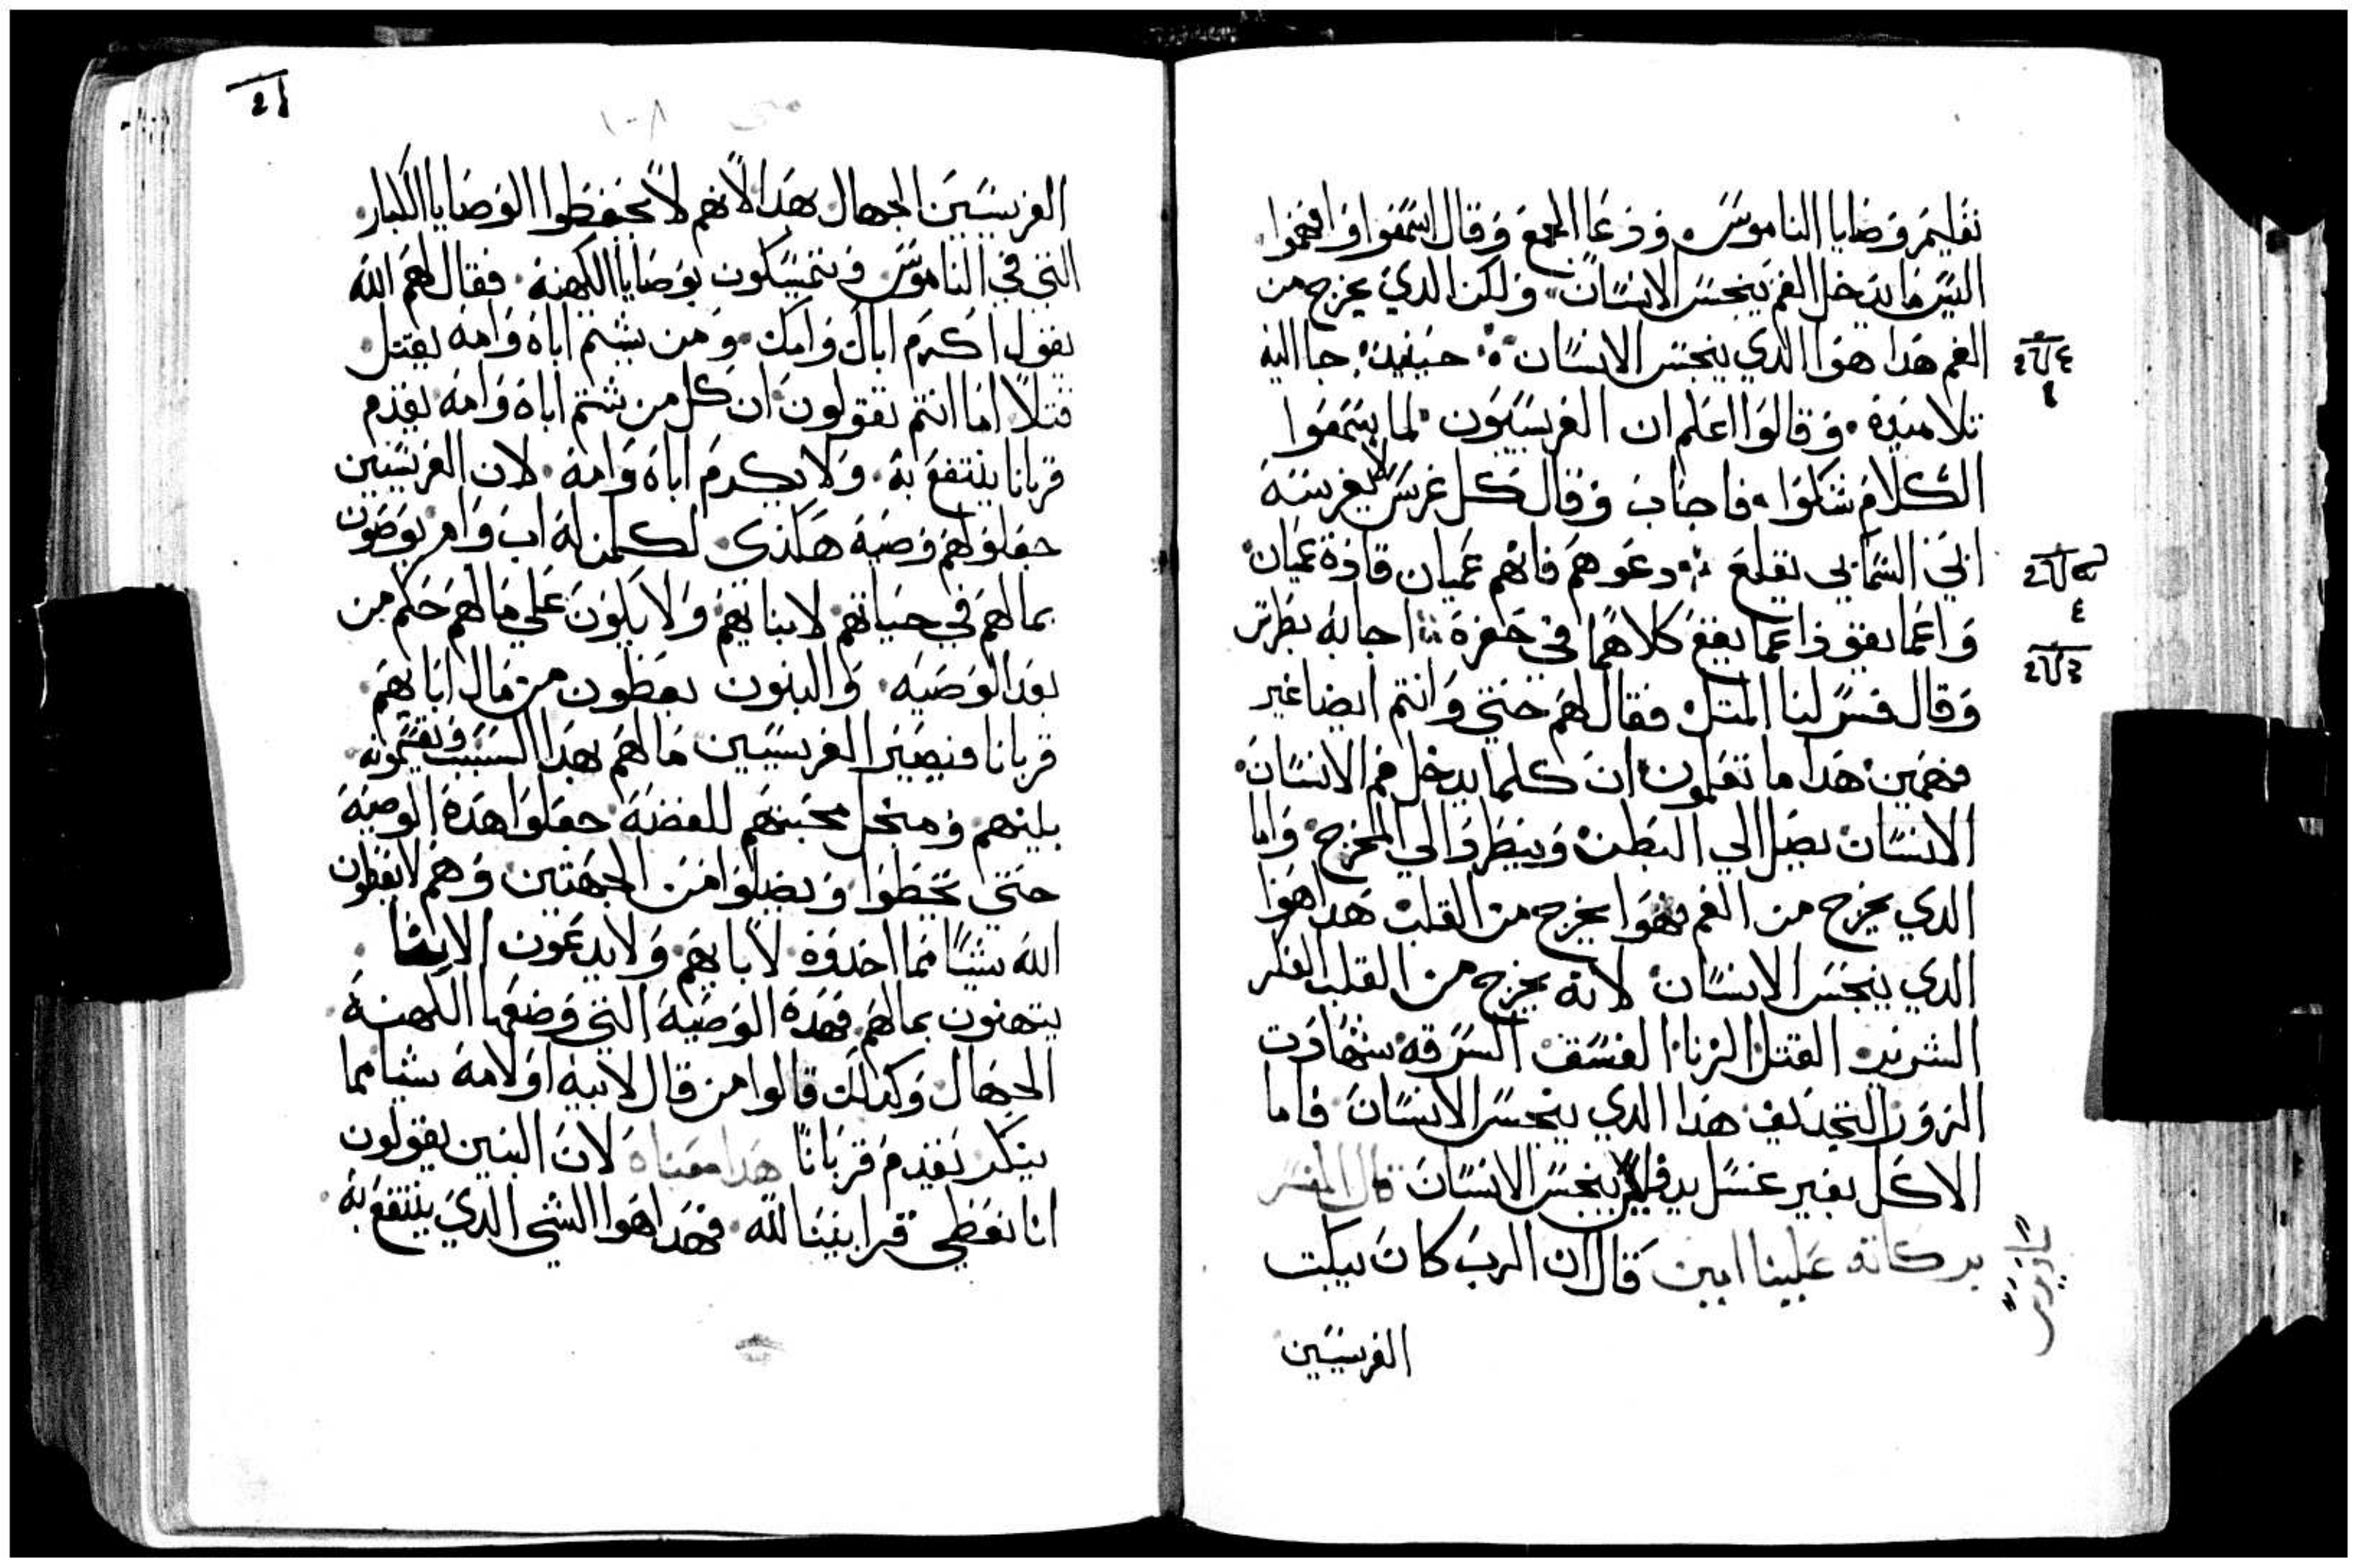 تعليم وصايا الناموس. ودعا الجمع وقال اسمعوا وافهموا.
ليس ما يدخل الفم ينجس الانسان. ولكن الدي يخرج من
الفم هدا هوا الدي ينجس الانسان. حينيد. جا اليه
تلاميده. وقالوا اعلم ان الفريسيون. لما يسمعوا
الكلام شكوا. فاجاب وقال كل غرس لا يغرسه
ابي السمايي يقلع. دعوهم فانهم عميان قادة عميان.
واعما يقود اعما يقع كلاهما في حفرة. اجابه بطرس
وقال فسر لنا المتل. فقال لهم حتي وانتم ايضا غير
فهمين. هدا ما تعلمون. ان كلما يدخل فم الانسان.
الانسان يصل الي البطن. وينطرد الي المخرج. واما
الدي يخرج من الفم فهوا يخرج من القلب. هدا هوا
الدي ينجس الانسان. لانه يخرج من القلب الفكر
الشرير. القتل. الزنا. الفسق. السرقه. شهادت
الزور. التجديف. هدا الدي ينجس الانسان. فاما
الاكل بغير غسل يد فليس ينجس الانسان قال المفسر
بركاته علينا امين قال ان الرب كان يبكت
الفريسيين
21
متى ١٠٨
الفريسيين الجهال بهدا لانهم لا يحفظوا الوصايا الكبار.
التي في الناموس ويتمسكون بوصايا الكهنة. فقال لهم الله
يقول اكرم اباك وامك. ومن يشتم اباه وامه يقتل.
قتلا اما انتم تقولون ان كل من شتم اباه وامه يقدم
قربانا ينتفع به. ولا يكرم اباه وامه. لان الفريسيين
جعلوا لهم وصية هكدي. لكلمن له اب وام يوصون
بمالهم في حياتهم لابنايهم ولا يكون علي مالهم حكم من
بعد الوصيه. والبنون يعطون من مال ابايهم
قربانا فيصير الفريسيين مالهم بهدا السبب ويقسمونه
بينهم ومنجل محبتهم للفضة جعلوا هدة الوصية
حتي يخطوا ويضلوا من الجهتين وهم لا يعطون
الله شيا مما اخدوه لابايهم ولا يدعون الابا
يتهنون بمالهم. فهدة الوصية التي وضعها الكهنة.
الجهال وكدلك قالوا من قال لابيه او لامه شيا مما
ينكر يقدم قربانا هدا معناه لان البنين يقولون
انا نعطي قرابيننا لله. فهدا هوا الشي الدي ينتفع به.